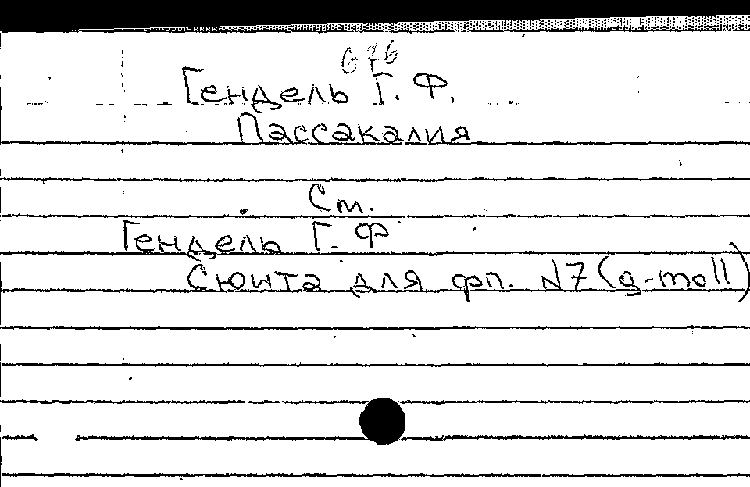 676
Гендель Г. Ф.
Пассакалия
Cm.
Гендель Г. Ф
Сюита для фп. N7 (g-moll)